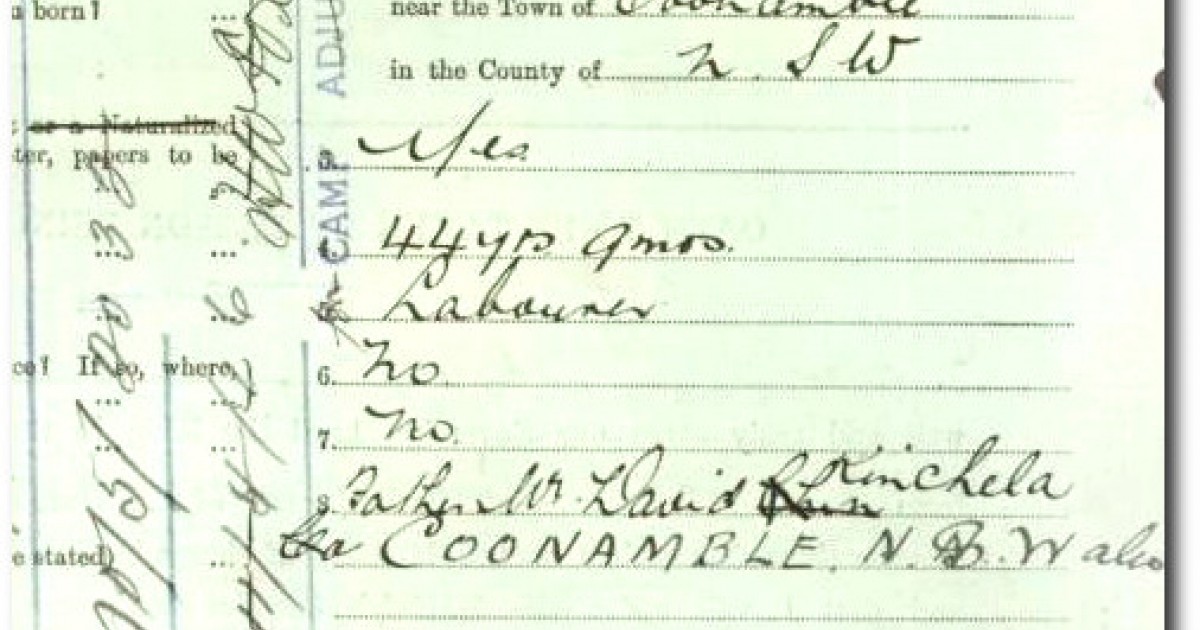 n born?
near the Town of Coonamble
in the County of N. S W
or a Naturalized
ter, papers to be
Yes
44 yrs 9 mos.
Labourer
ce? If so, where,
6. No
7. No.
8. Father Mr. David Kinchela
COONAMBLE. N. S. Wales
e stated)
CAMP ADJU